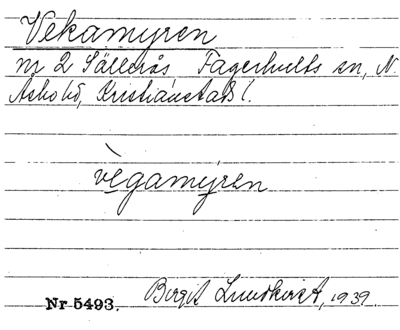 Vekamyren
nr 2 Sällerås, Fagerhults sn, N.
Åsbo hd, Kristianstads l.
vègamýren
Nr 5493. Birgit Lundkvist, 1939.